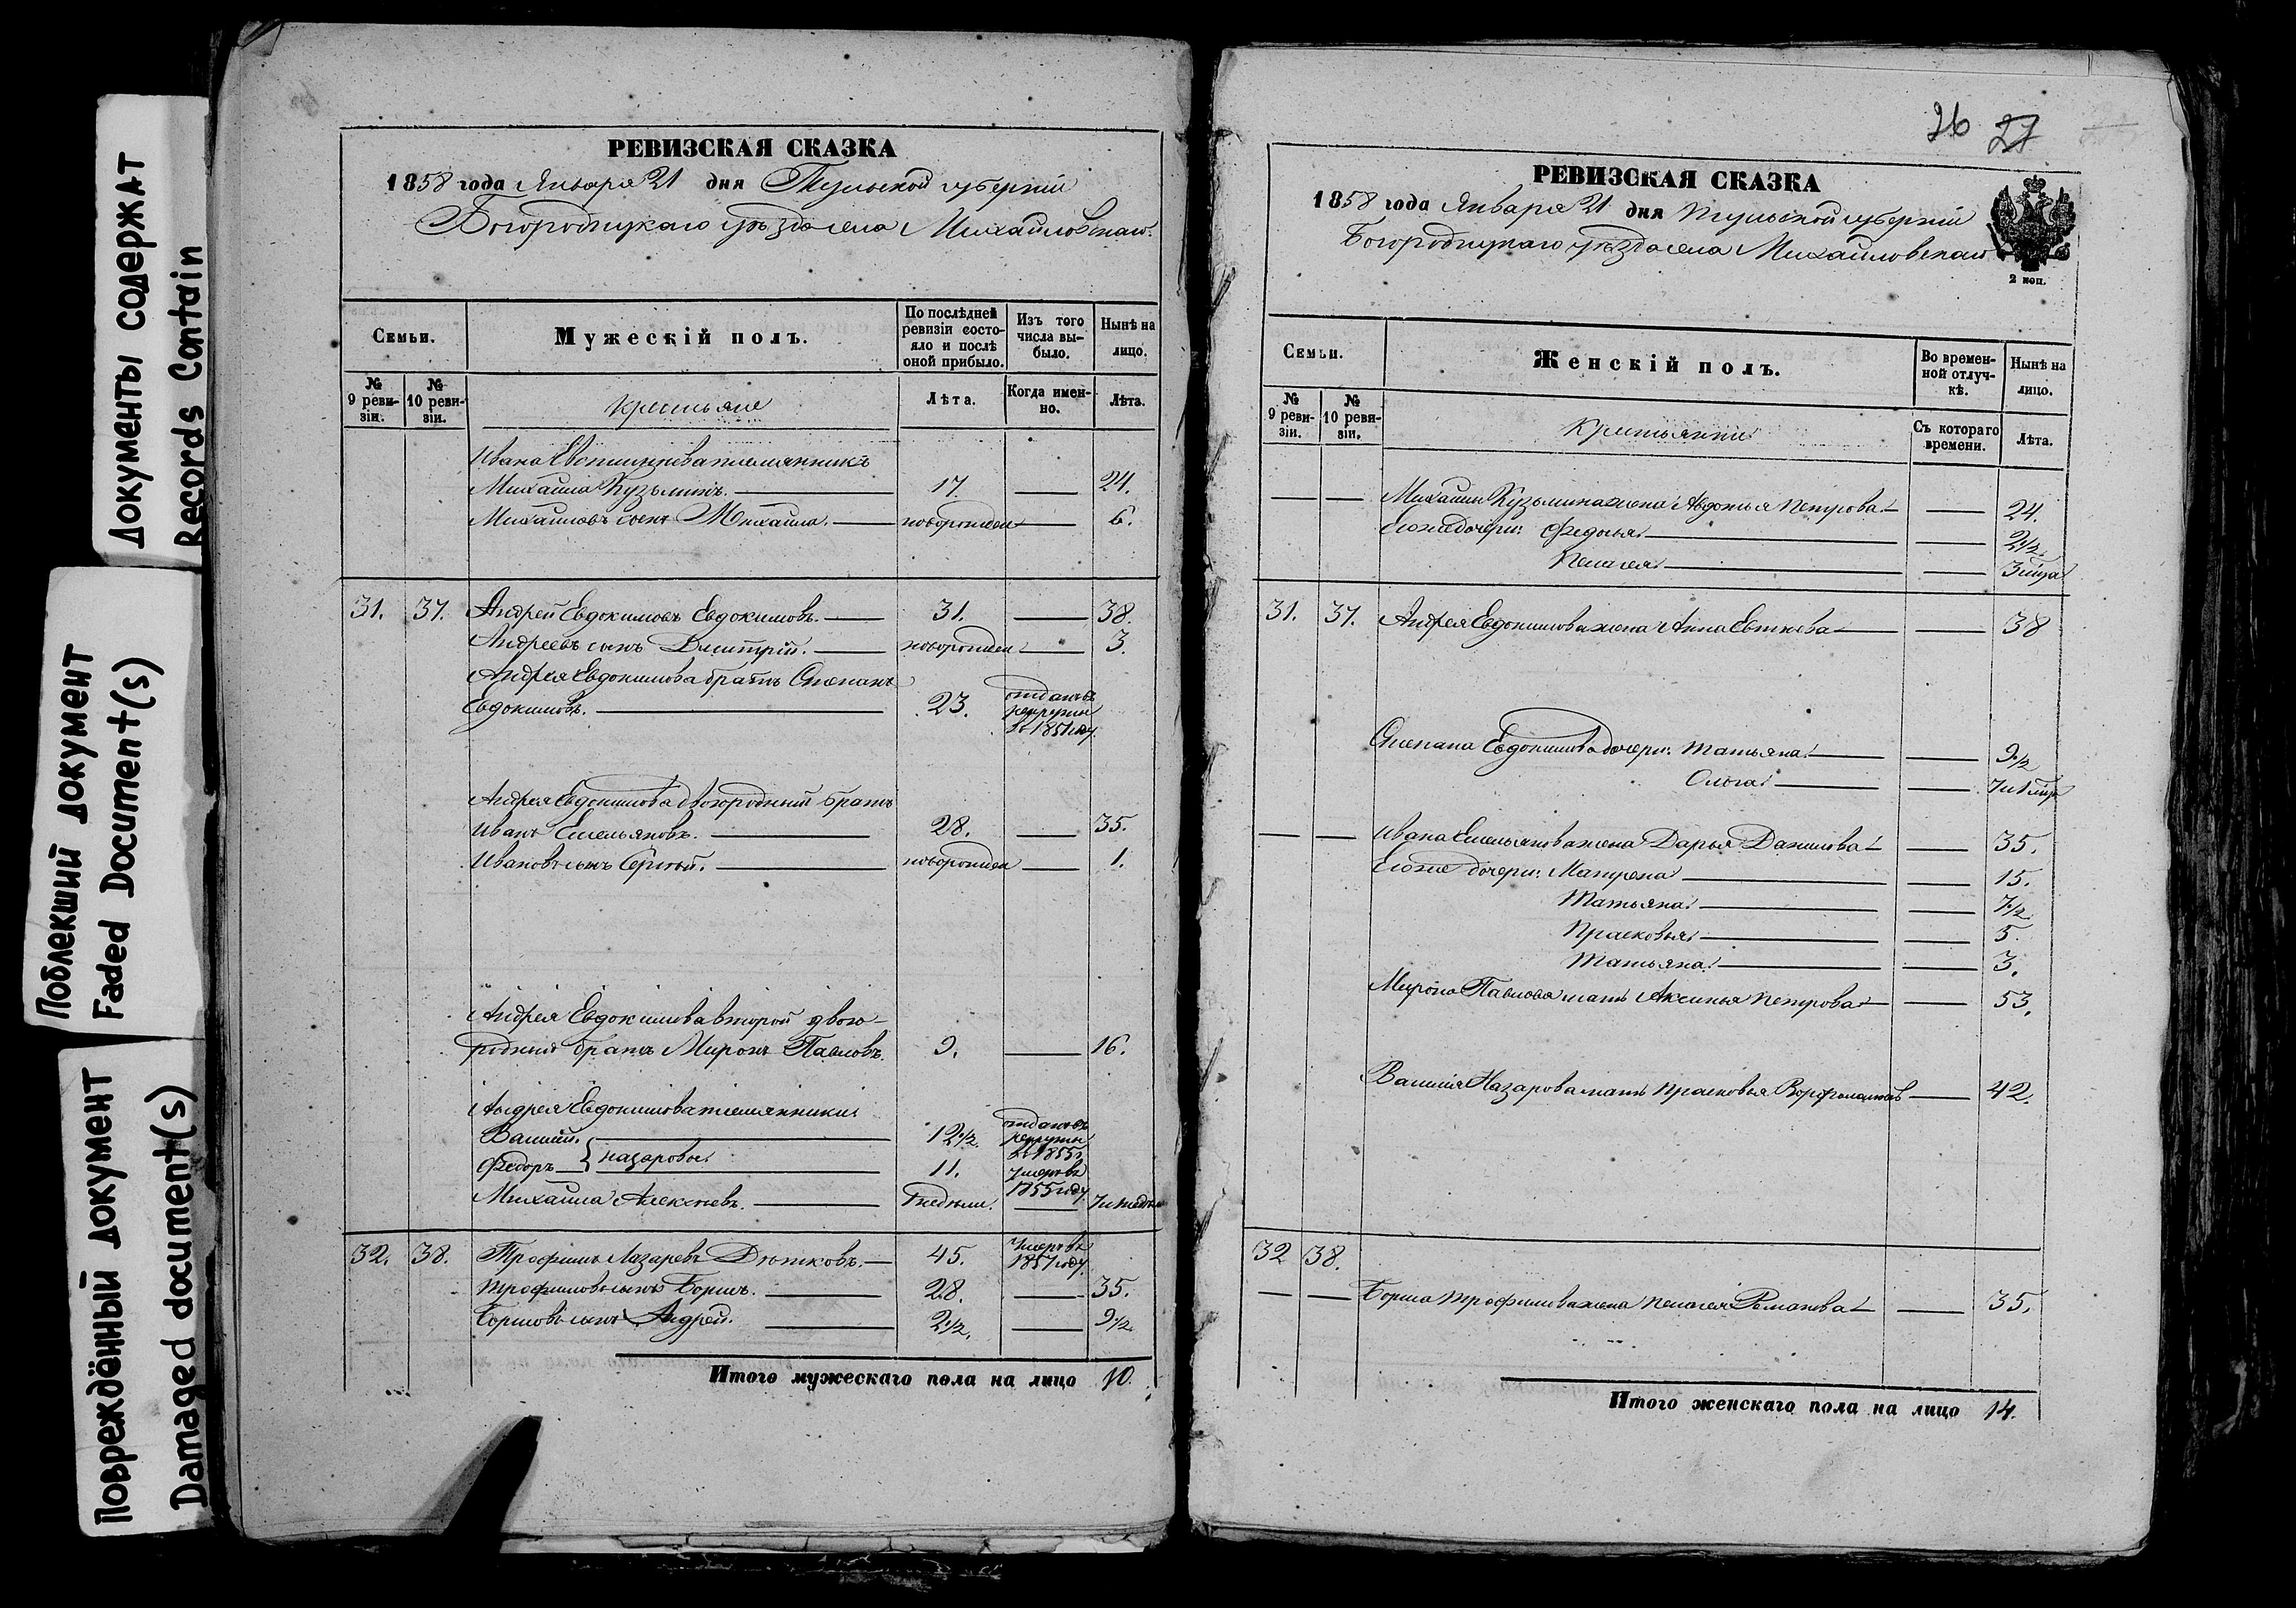 Документы содержат
Records Contain
Поблекший документ
Faded Document(s)
Повреждённый документ
Damaged document(s)
РЕВИЗСКАЯ СКАЗКА
1858 года Января 21 дня Тульской губерніи
Богородицкаго уѣзда села Михайловскаго.
Семьи.
Мужескій полъ.
По послѣдней ревизіи состояло и послѣ оной прибыло.
Изъ того числа выбыло.
Нынѣ на лицо.
№ 9 ревизіи.
№ 10 ревизіи.
Крестьяне
Лѣта.
Когда именно.
Лѣта.
Ивана племянникъ
Михаила Кузьминъ. 17. 24.
Михаиловъ сынъ Михаила. новорожден 6.
31. 37. Андрей Евдокимовъ Евдокимовъ. 31. 38.
Андреевъ сынъ Дмитрій. новорожден 3.
Андрея Евдокимова братъ Степанъ
Евдокимовъ. 23. отданъ въ рекруты въ 1851 году
Андрея Евдокимова двоюродный братъ
Иванъ Емельяновъ. 28. 35.
Ивановъ сынъ Сергѣй. новорожден 1.
Андрея Евдокимова второй двою-
родный братъ Миронъ Павловъ. 9. 16.
Андрея Евдокимова племянники
Василій. 12 1/2. отданъ въ рекруты въ 1855 г.
Федоръ } Назаровы. 11. умеръ въ 1855 году.
Михаила Алексѣевъ. недѣли.
32. 38. Трофимъ Лазаревъ Дютковъ. 45. умеръ въ 1857 году.
Трофимовъ сынъ Борисъ. 28. 35.
Борисовъ сынъ Андрей. 2 1/2. 9 1/2
Итого мужескаго пола на лицо 10.
26 27
РЕВИЗСКАЯ СКАЗКА
1858 года Января 21 дня Тульской губерніи
Богородицкаго уѣзда села Михайловскаго
2 коп.
Семьи.
Женскій полъ.
Во временной отлучкѣ.
Нынѣ на лицо.
№ 9 ревизіи.
№ 10 ревизіи.
Крестьянки
Съ котораго времени.
Лѣта.
Михаилы Кузьмина жена Авдотья Петрова 24.
Его же дочери: Федосья 2 1/2.
Пелагея 3 мѣсяца
31. 37. Андрея Евдокимова жена Анна 38
Степана Евдокимова дочери: Татьяна 9 1/2
Ольга
Ивана Емельянова жена Дарья Данилова 35.
Его же дочери: Матрена 15.
Татьяна 7 1/2
Прасковья 5.
Татьяна 3.
Мирона Павлова мать Аксинья Петрова 53.
Василія Назарова мать Прасковья 42.
32 38.
Бориса Трофимова жена Пелагея Романова 35.
Итого женскаго пола на лицо 14.